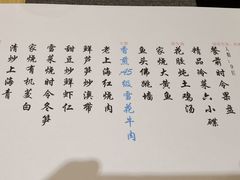 餐前时令果盘
精品冷菜六小碟
花胶炖土鸡汤
家烧大黄鱼
鱼头佛跳墙
香煎A5级雪花牛肉
老上海红烧肉
鲜芦笋炒澳带
甜豆炒鲜虾仁
雪菜烧时令冬笋
家烧有机茭白
清炒上海青